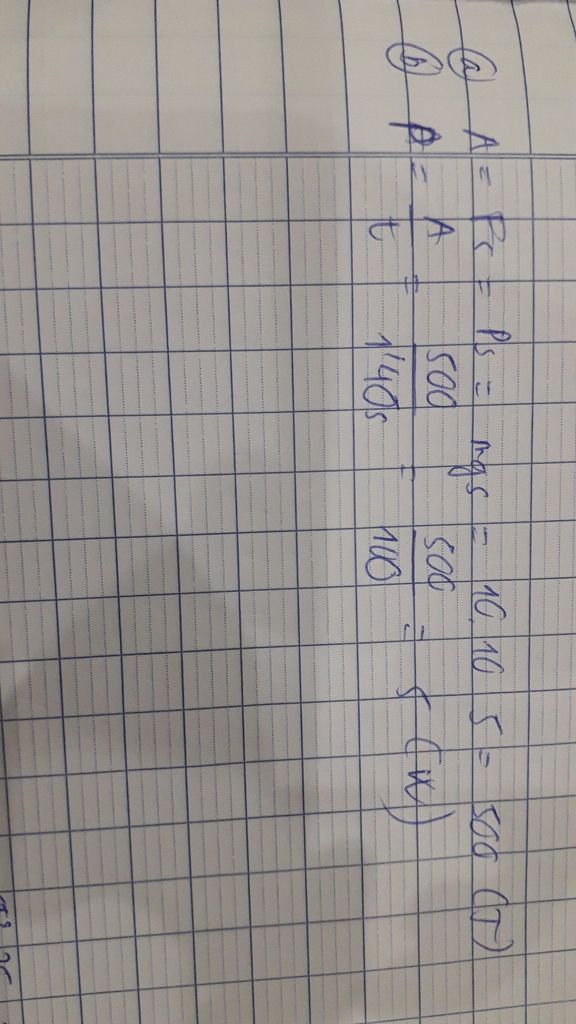 ⓐ A = Fs = Ps = mgs = 10.10.5 = 500 (J)
ⓑ P = A/t = 500/1'40s = 500/100 = 5 (W)